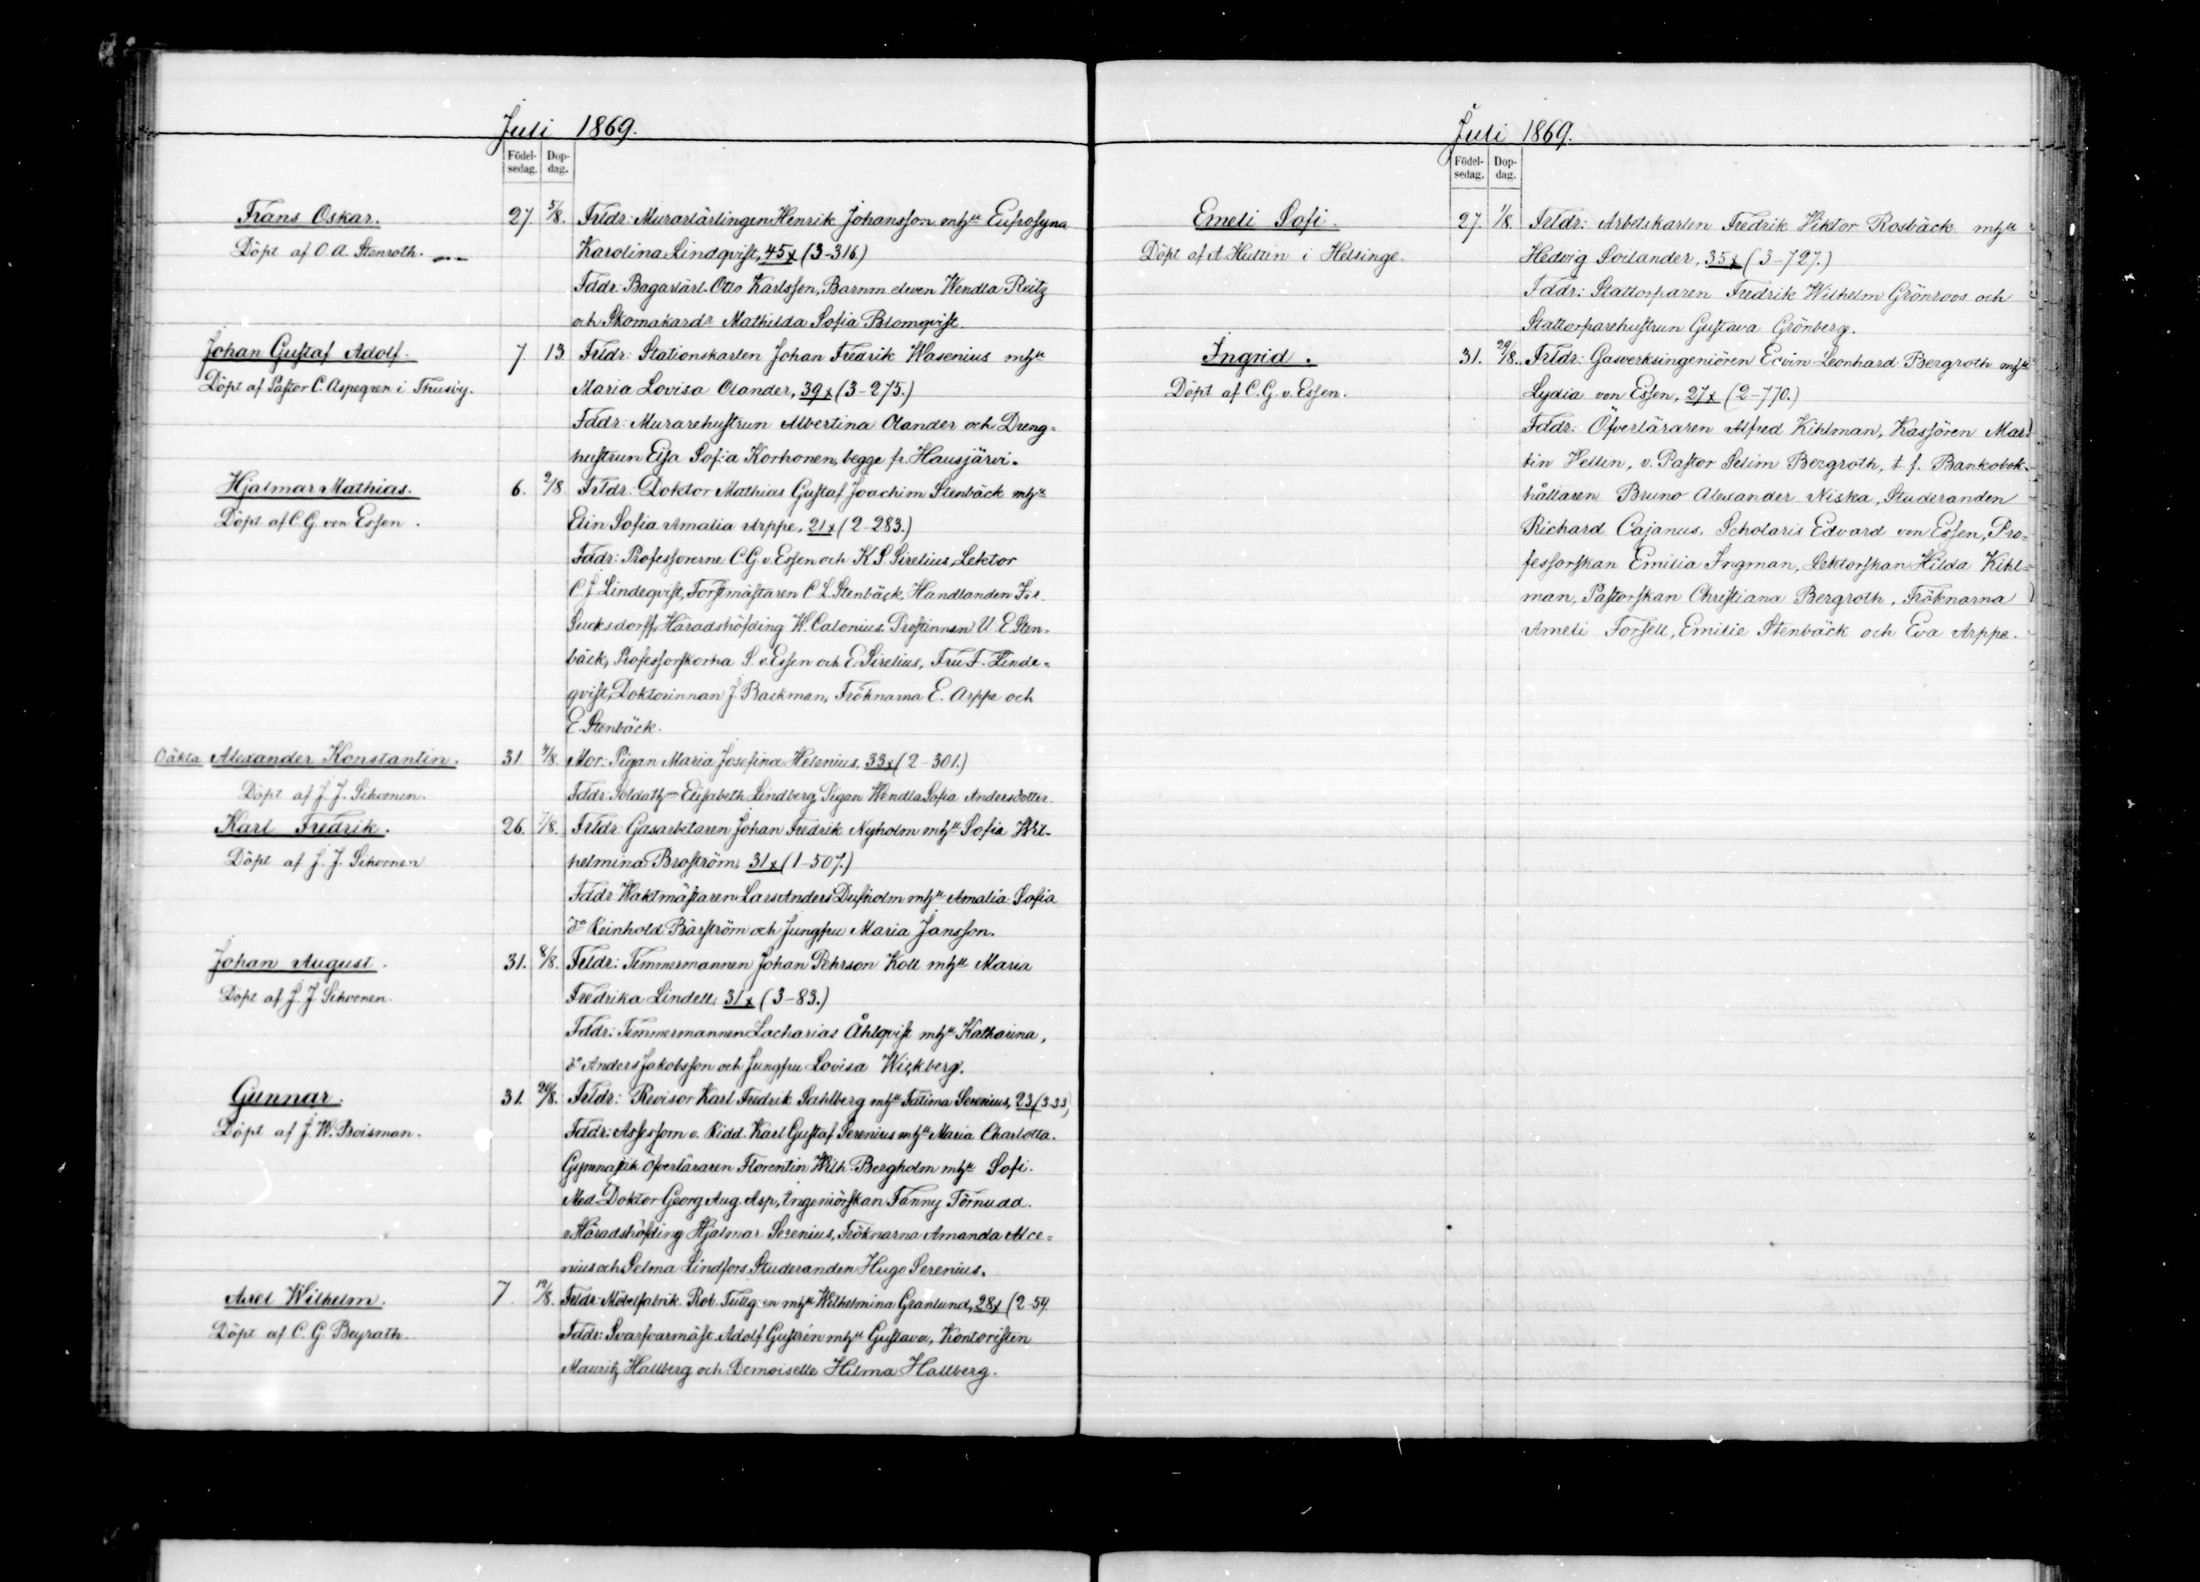 Juli 1869.
Födel-
sedag.
Dop-
dag.
Frans Oskar.
27. 5/8. Frldr: Murarlärlingen Henrik Johansson mhu Eufrosyna
Döpt af O. A. Stenroth.
Karolina Lindqvist, 45x (3-316)
Fddr: Bagarlärl. Otto Karlssen, Barnm eleven Wendla Reitz
och Skomakardr Mathilda Sofia Blomqvist.
Johan Gustaf Adolf.
7. 13. Frldr: Stationskarlen Johan Fredrik Wasenius mhu
Döpt af Pastor C. Aspegren i Thusby.
Maria Lovisa Olander, 39x (3-275.)
Fddr: Murarehustrun Albertina Olander och Dreng-
hustrun Efsa Sofia Korhonen, begge fr. Hausjärvi.
Hjalmar Mathias.
6. 2/8. Frldr: Doktor Mathias Gustaf Joachim Stenbäck mhu
Döpt af C. G. von Essen.
Elin Sofia Amalia Arppe, 21x (2-283.)
Fddr: Professorerne C. G. v. Essen och K. S. Sirelius, Lektor
C. J. Lindeqvist, Forstmästaren C L Stenbäck, Handlanden
Sucksdorff, Häradshöfding W. Calonius, Prostinnan U. E. Sten-
bäck, Professorskorna S. v. Essen och E. Sirelius, Fru F. Linde-
qvist, Doktorinnan J. Backman, Fröknarna E. Arppe och
E. Stenbäck.
Oäkta Alexander Konstantin.
31. 4/8. Mor: Pigan Maria Josefina Helenius, 33x (2-301.)
Döpt af J. J. Sihvonen.
Fddr: Elisabeth Lindberg, Pigan Wendla Sofia Andersdotter.
Karl Fredrik.
26. 7/8. Frldr: Gasarbetaren Johan Fredrik Nyholm mhu Sofia Wil-
Döpt af J. J. Sihvonen
helmina Broström, 31x (1-507.)
Fddr: Waktmästaren Lars Anders Dufholm mhu Amalia Sofia
do Reinhold Bärström och Jungfru Maria Jansson.
Johan August.
31. 8/8. Frldr: Timmermannen Johan Pehrson Koll mhu Maria
Döpt af J. J. Sihvonen.
Fredrika Lindell, 31x (3-83.)
Fddr: Timmermannen Zacharias Åhlqvist mhu Katharina,
do Anders Jakobsson och Jungfru Lovisa Wickberg.
Gunnar.
31. 20/8. Frldr: Revisor Karl Fredrik Sahlberg mhu Fatima Serenius, 23 (3-33)
Döpt af J. W. Boisman.
Fddr: Assessorn o. Ridd. Karl Gustaf Serenius mhu Maria Charlotta.
Gymnastik öfverläraren Florentin Wilh. Bergholm mhu Sofi.
Med Doktor Georg Aug. Asp, Ingeniörskan Fanny Törnudd.
v Häradshöfding Hjalmar Serenius, Fröknarna Amanda Alce-
nius och Selma Lindfors. Studeranden Hugo Serenius.
Axel Wilhelm.
7. 19/8. Frldr: Möbelfabrik. Rob. Tullgren mhu Wilhelmina Granlund, 28x (2-59
Döpt af C. G. Beyrath.
Fddr: Svarfvarmäst. Adolf Gustrén mhu Gustava, Kontoristen
Mauritz Hallberg och Demoiselle Hilma Hallberg.
Juli 1869.
Födel-
sedag.
Dop-
dag.
Emeli Sofi.
27. 1/8. Frldr: Arbetskarlen Fredrik Viktor Rosbäck mhu
Döpt af A. Huttin i Helsinge.
Hedvig Soilander, 35x (3-727.)
Fddr: Stattorparen Fredrik Wilhelm Grönroos och
Stattorparehustrun Gustava Grönberg.
Ingrid.
31. 29/8. Frldr: Gasverksingeniören Edvin Leonhard Bergroth mhu
Döpt af C. G. v. Essen.
Lydia von Essen, 27x (2-770.)
Fddr: Öfverläraren Alfred Kihlman, Kassören Mar-
tin Wellin, v. Pastor Selim Bergroth, t. f. Bankobok-
hållaren Bruno Alexander Niska, Studeranden
Richard Cajanus, Scholaris Edvard von Essen, Pro-
fessorskan Emilia Ingman, Lektorskan Hilda Kihl-
man, Pastorskan Christiana Bergroth, Fröknarna
Ameli Forsell, Emilie Stenbäck och Eva Arppe.